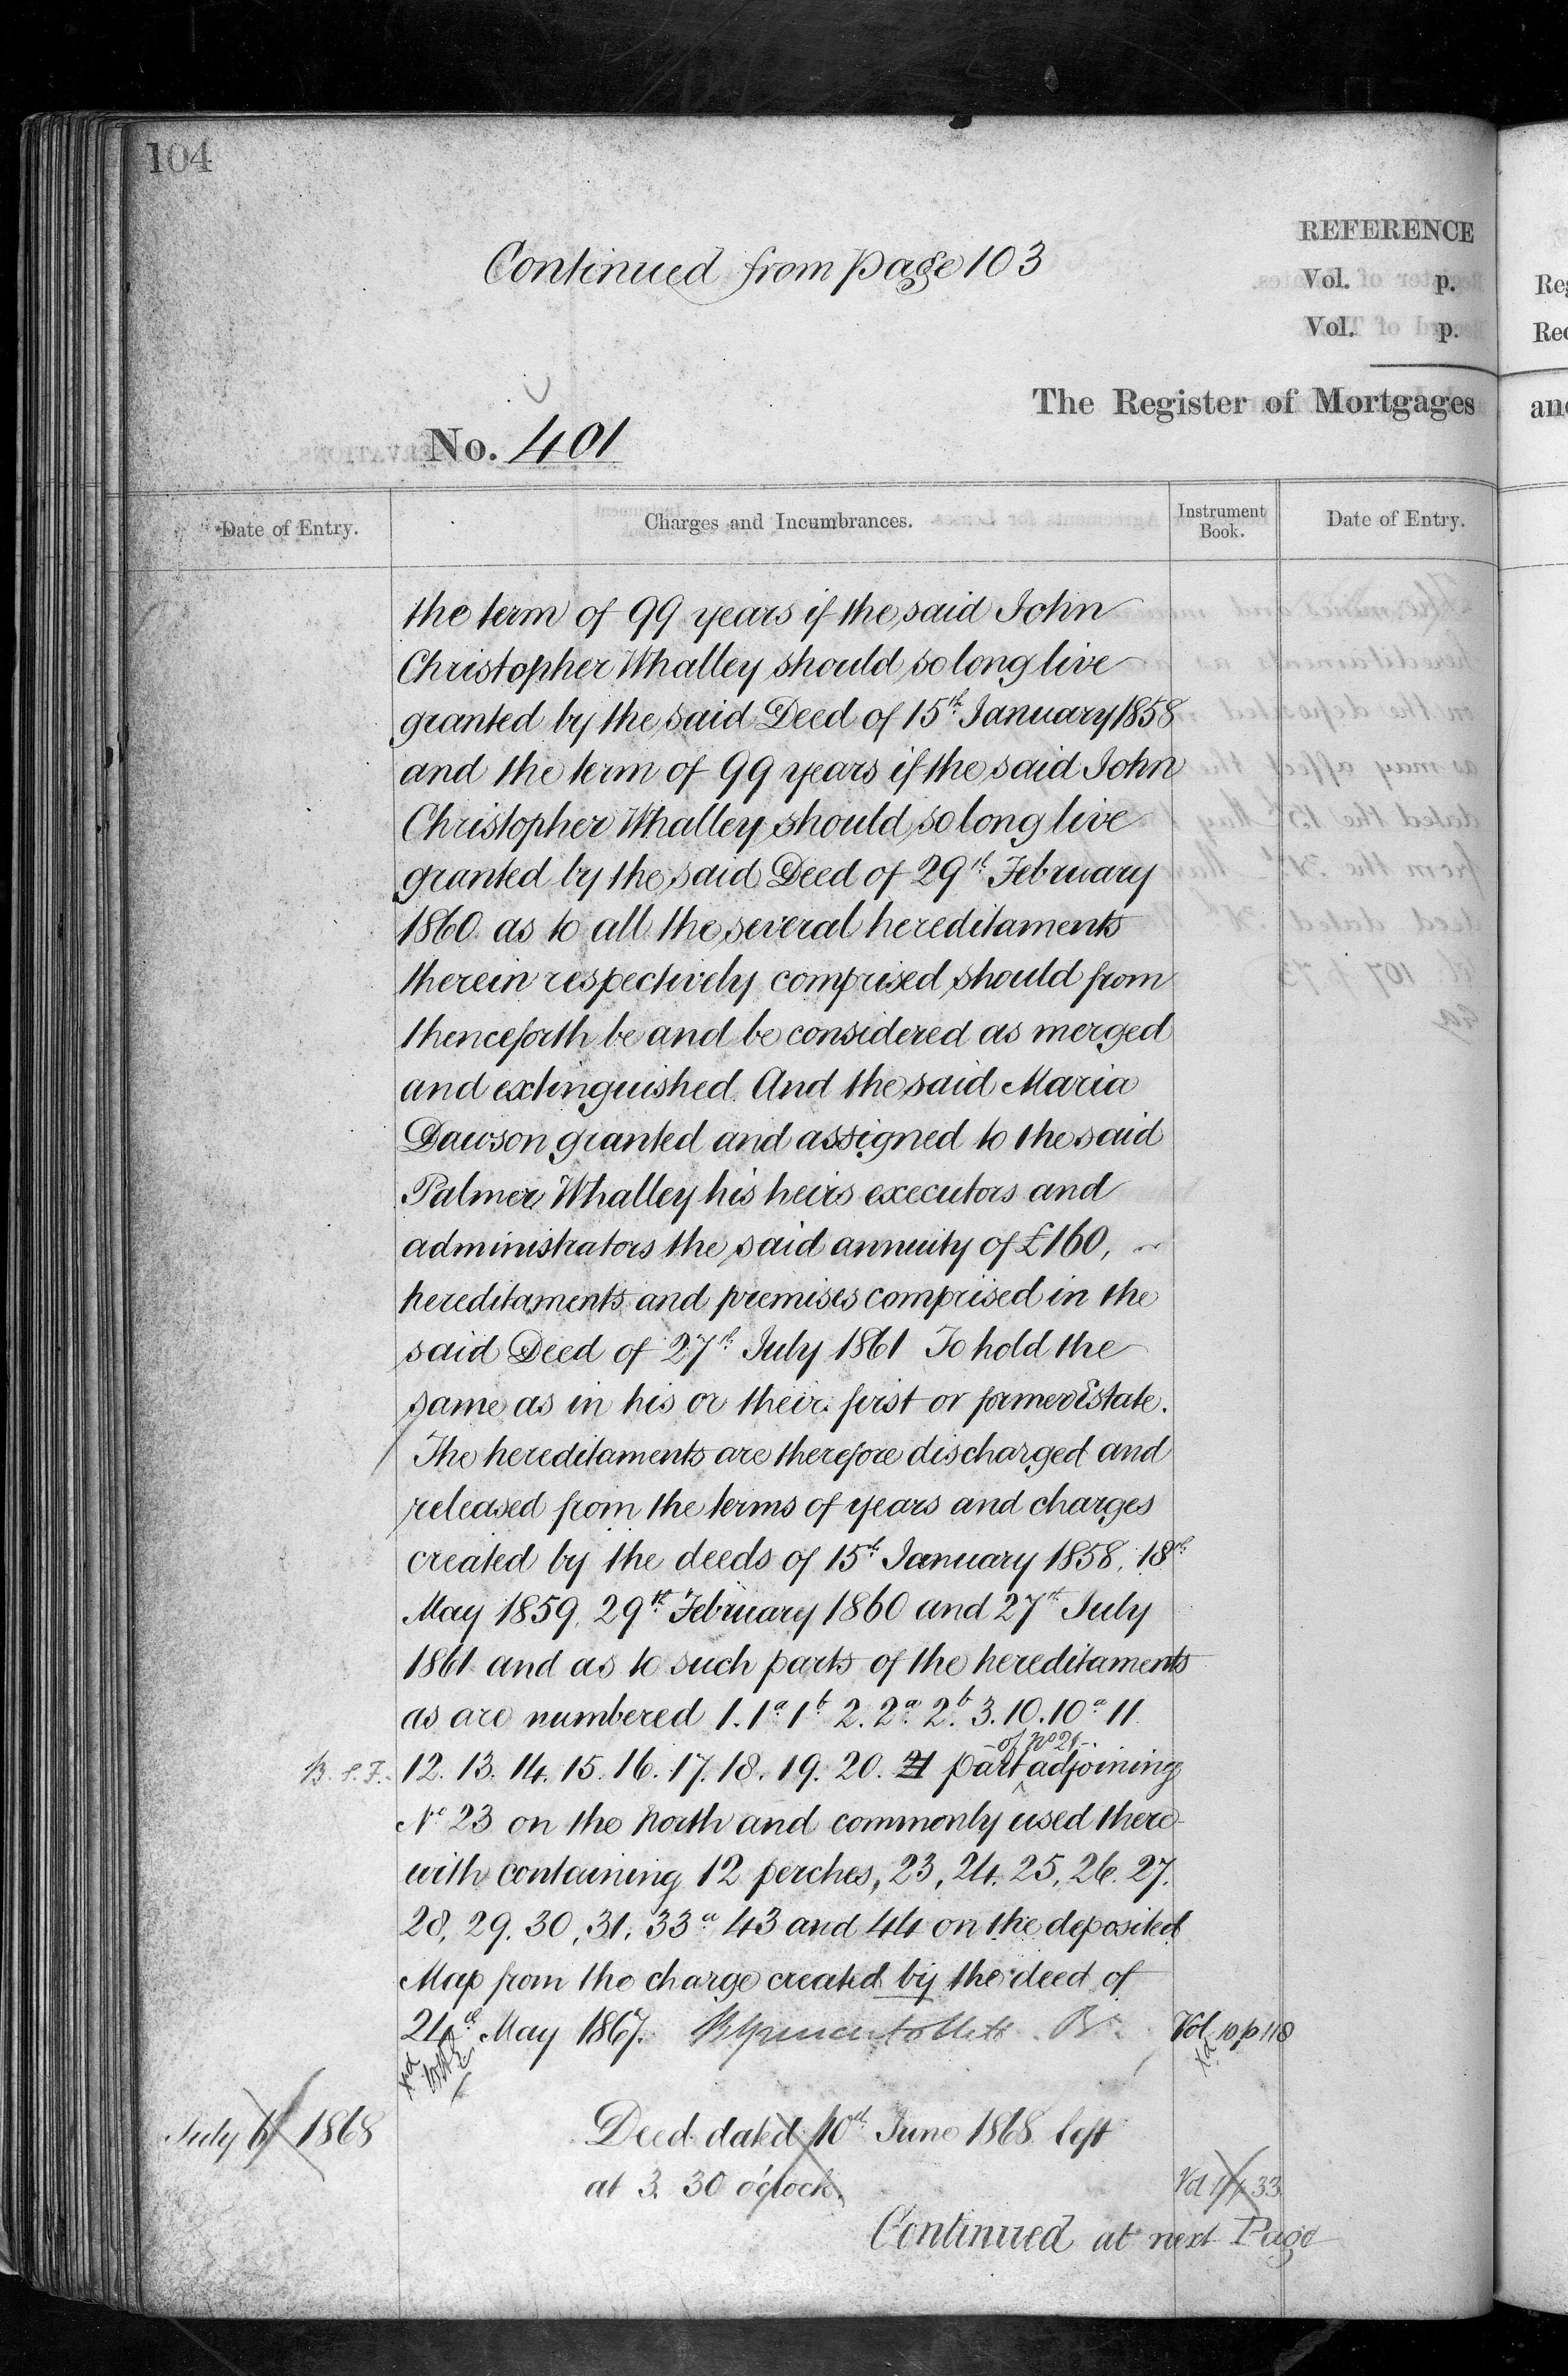 104
Continued from page 103
REFERENCE
Vol. p.
Vol. p.
The Register of Mortgages
No. 401
Date of Entry.
Charges and Incumbrances.
Instrument Book.
Date of Entry.
the term of 99 years if the said John
Christopher Whalley should so long live
granted by the said Deed of 15th January 1858
and the term of 99 years if the said John
Christopher Whalley should so long live
granted by the said Deed of 29th February
1860 as to all the several hereditaments
therein respectively comprised should from
thenceforth be and be considered as merged
and extinguished. And the said Maria
Dawson granted and assigned to the said
Palmer Whalley his heirs executors and
administrators the said annuity of £160,
hereditaments and premises comprised in the
said Deed of 27th July 1861 To hold the
same as in his or their first or former Estate.
The hereditaments are therefore discharged and
released from the terms of years and charges
created by the deeds of 15th January 1858, 18th
May 1859, 29th February 1860 and 27th July
1861 and as to such parts of the hereditaments
as are numbered 1. 1a 1b 2. 2a 2b 3. 10. 10a 11.
of No 21
B. S. F. 12. 13. 14. 15. 16. 17. 18. 19. 20. 21 part adjoining
No 23 on the North and commonly used there-
with containing 12 perches, 23, 24. 25, 26. 27.
28, 29. 30, 31, 33a 43 and 44 on the deposited
Map from the charge created by the deed of
24th May 1867. Vol. 10 p 118
July 6 1868 Deed dated 10th June 1868 left
at 3. 30 o'clock.
Continued at next Page